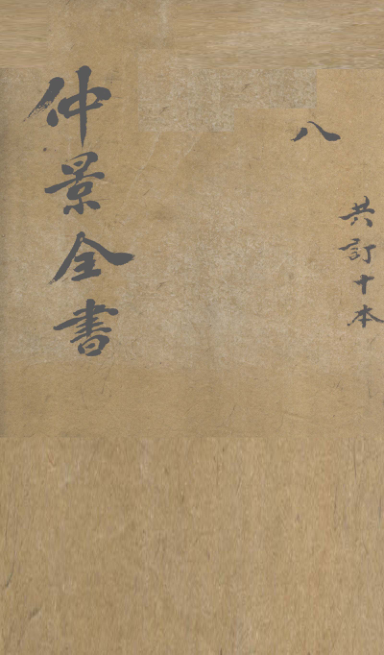 八
共訂十本
仲景全書